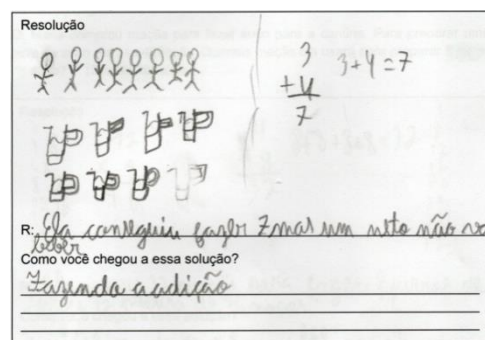 Resolução
3
+4
7
3+4=7
R: Ela conseguiu fazer 7 mas um neto não va
beber
Como você chegou a essa solução?
Fazenda a adição